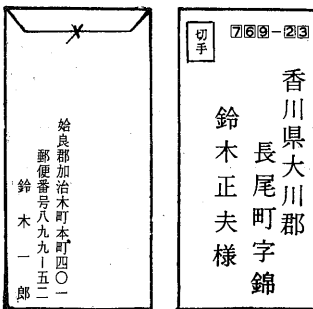 切手
769-23
香川県大川郡
長尾町字錦
鈴木正夫様
姶良郡加治木町本町四〇一
郵便番号八九九ー五二
鈴木一郎